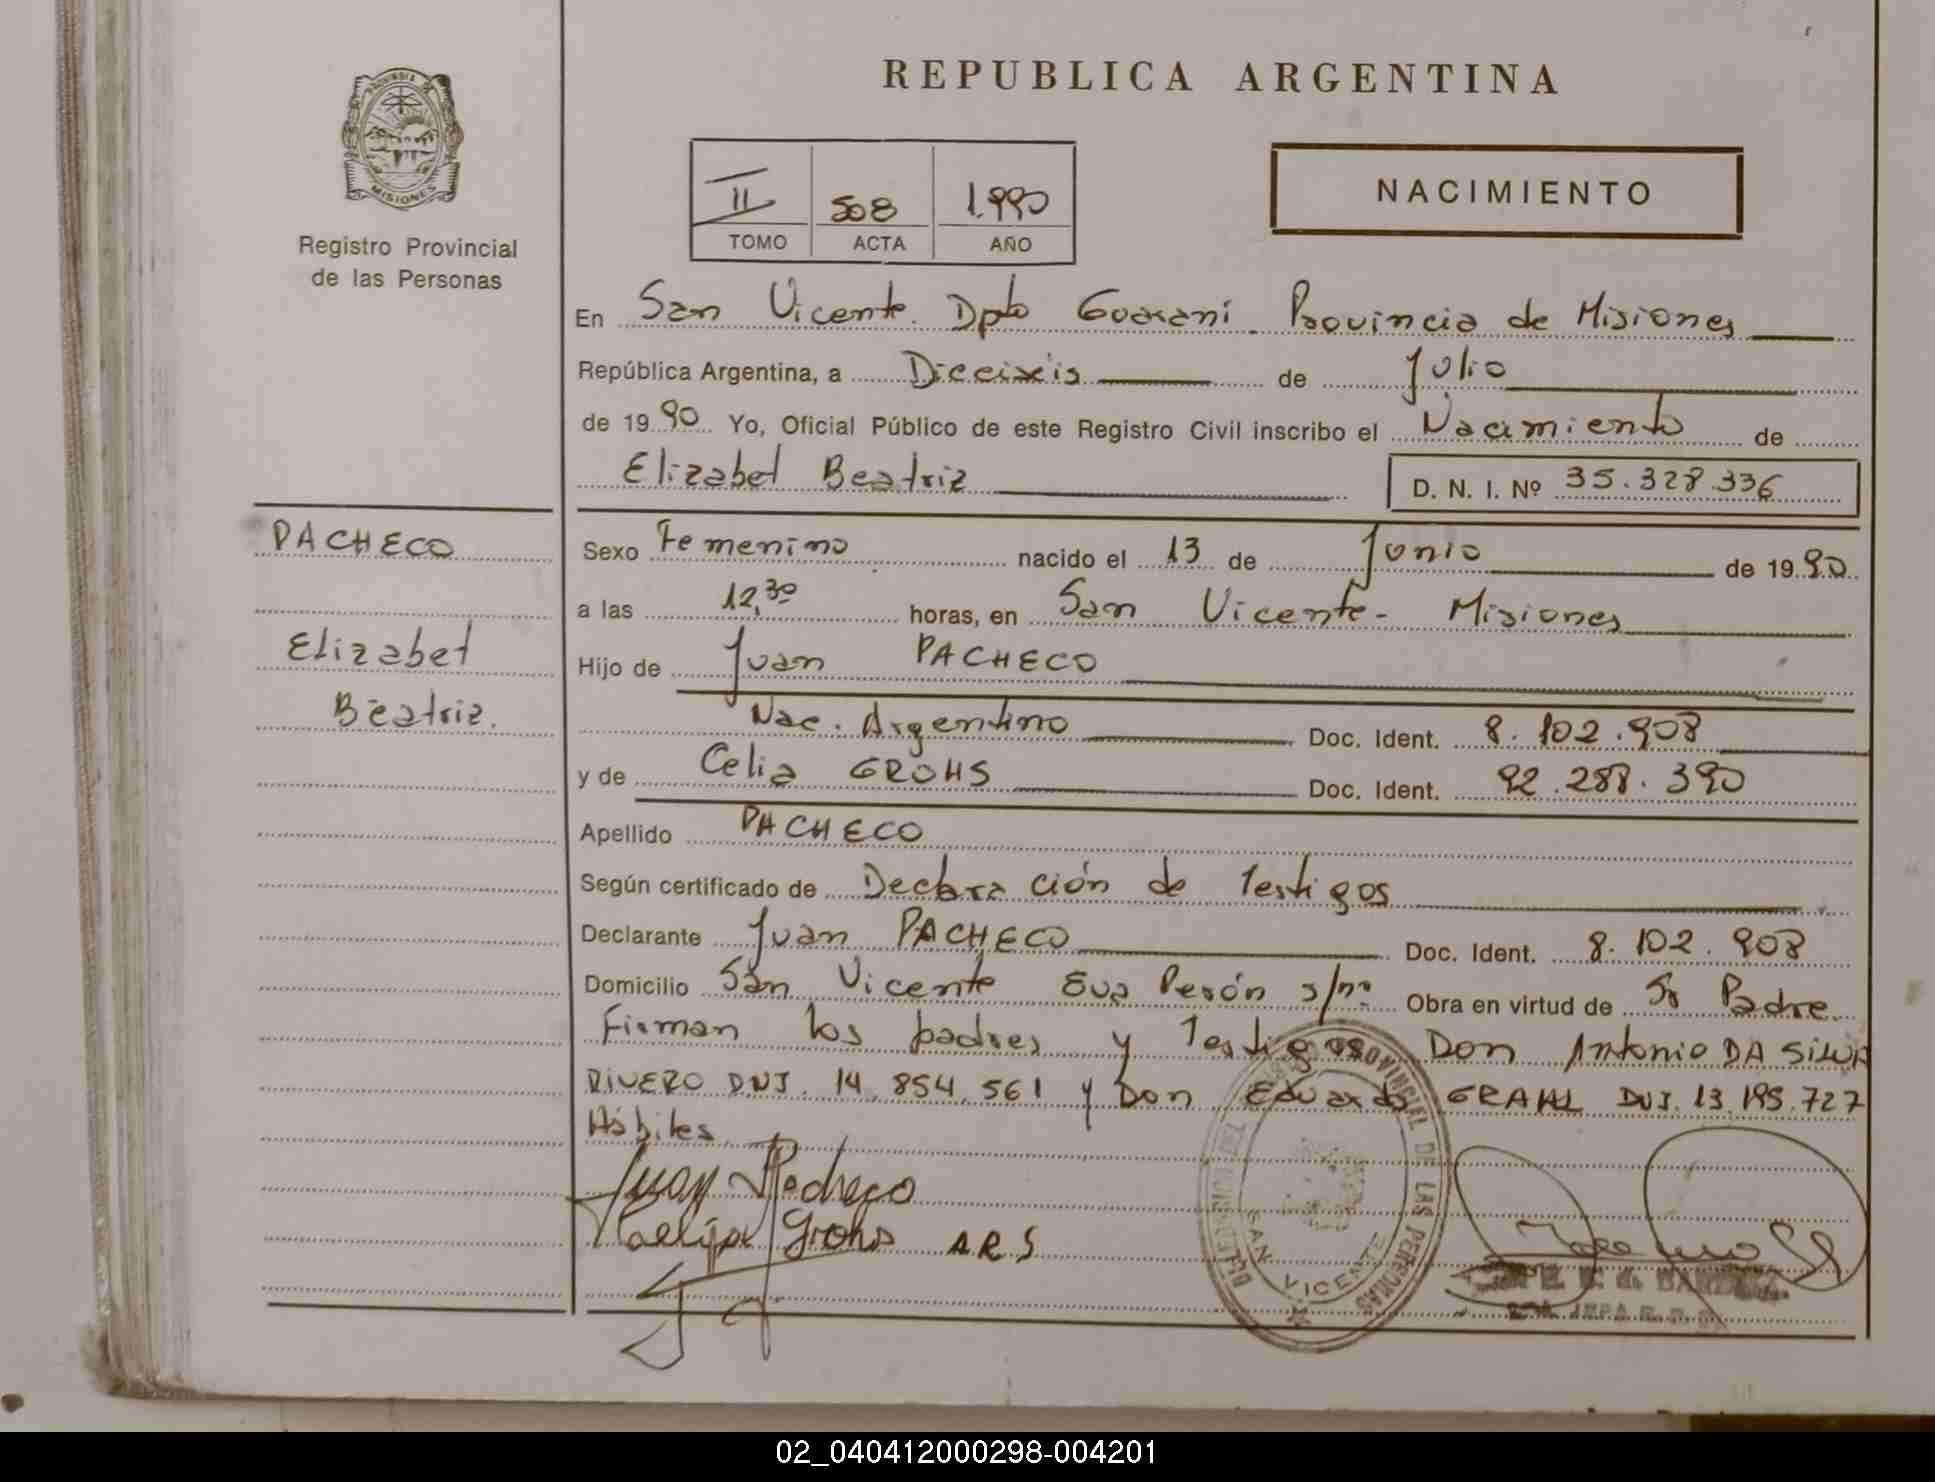 REPUBLICA ARGENTINA
PROVINCIA DE
MISIONES
Registro Provincial
de las Personas
II 508 1.990
TOMO ACTA AÑO
NACIMIENTO
En San Vicente Dpto Guarani Provincia de Misiones
República Argentina, a Diecixéis de Julio
de 1990 Yo, Oficial Público de este Registro Civil inscribo el Nacimiento de
Elizabet Beatriz D. N. I. Nº 35.328.336
PACHECO
Elizabet
Beatriz.
Sexo Femenino nacido el 13 de Junio de 1990
a las 12,30 horas, en San Vicente - Misiones
Hijo de Juan PACHECO
Nac. Argentino Doc. Ident. 8.102.908
y de Celia GROHS Doc. Ident. 92.288.390
Apellido PACHECO
Según certificado de Declaración de Testigos
Declarante Juan PACHECO Doc. Ident. 8.102.908
Domicilio San Vicente Eva Perón s/nº Obra en virtud de Sr Padre.
Firman los padres y Testigos Don Antonio DA SILVA
RIVERO DNI. 14.854.561 y Don Eduardo GRAHL DNI. 13.195.727
Hábiles
Juan Pacheco
Grohs ARS
PROVINCIAL DE LAS PERSONAS
SAN VICENTE
02_040412000298-004201